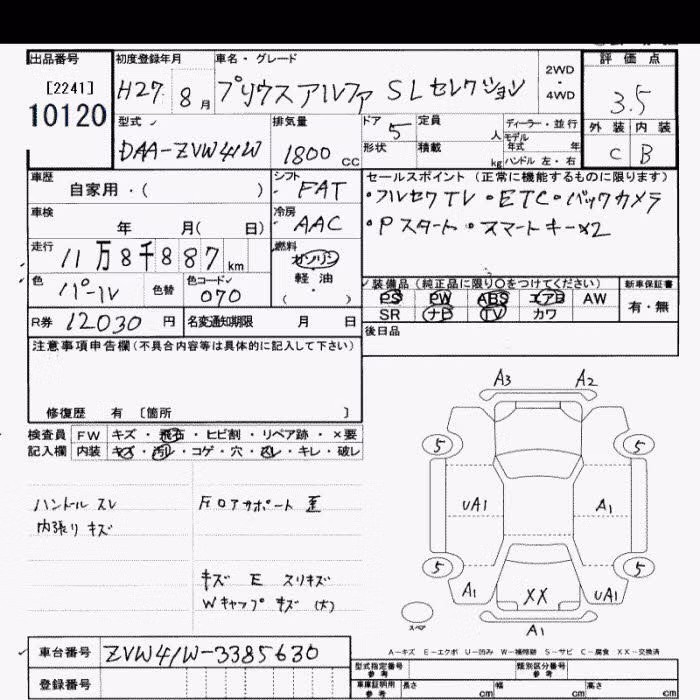 出品番号 初度登録年月 車名・グレード 評価点
[2241] H27. 8月 プリウスアルファ SLセレクション 2WD・4WD 3.5
10120
型式 排気量 ドア 5 定員 人 ディーラー・並行 外装 内装
DAA-ZVW41W 1800 CC 形状 積載 kg モデル年式 年 ハンドル 左・右 C B
車歴 シフト セールスポイント (正常に機能するものに限ります)
自家用・( ) FAT ・フルセグTV・ETC・バックカメラ
車検 冷房 ・Pスタート・スマートキー×2
年 月( 日) AAC
走行 11万8千887km 燃料 ガソリン 軽油 ( )
色 パール 色替 色コード 070 装備品(純正品に限り○をつけてください) 新車保証書
PS PW ABS エアB AW 有・無
SR ナビ TV カワ
R券 12030円 名変通知期限 月 日 後日品
注意事項申告欄(不具合内容等は具体的に記入して下さい)
修復歴 有 [箇所 ]
A3 A2
検査員 FW キズ・飛石・ヒビ割・リペア跡・×要
記入欄 内装 キズ・汚レ・コゲ・穴・スレ・キレ・破レ
5 5
ハンドル スレ
内張り キズ
UA1 A1
5 5
キズ E スリキズ
Wキャップ キズ (大)
A1 XX UA1
スペア
A1
A-キズ E-エクボ U-凹み W-補修跡 S-サビ C-腐食 XX-交換済
車台番号 ZVW41W-3385630
型式指定番号 参考 類別区分番号 参考
登録番号
車庫証明用 参考 長さ cm 幅 cm 高さ cm